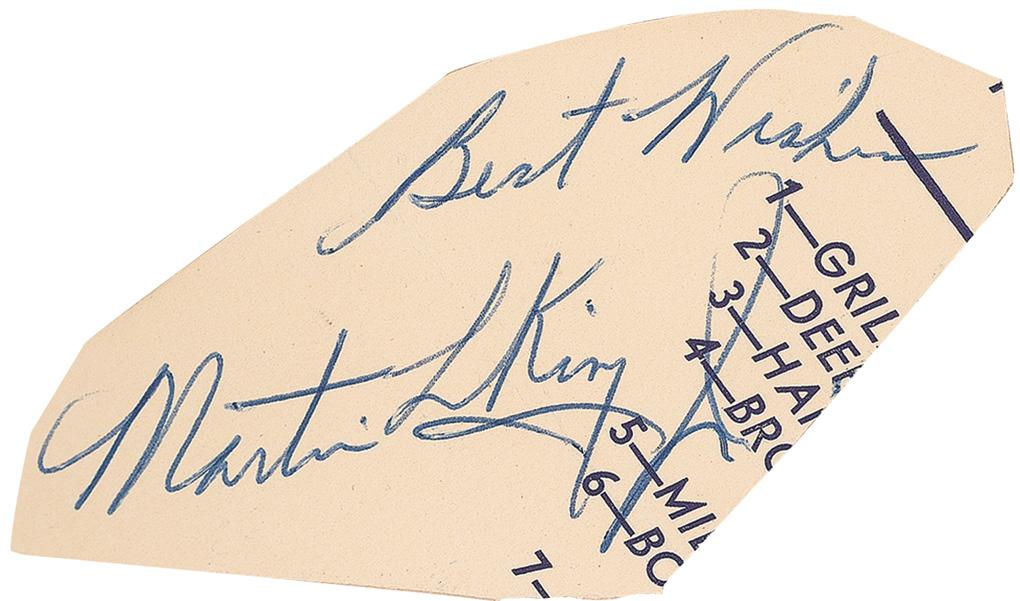 Best Wishes
Martin L King Jr
1—GRIL
2—DEE
3—HA
4—BRO
5—MI
6—BO
7—